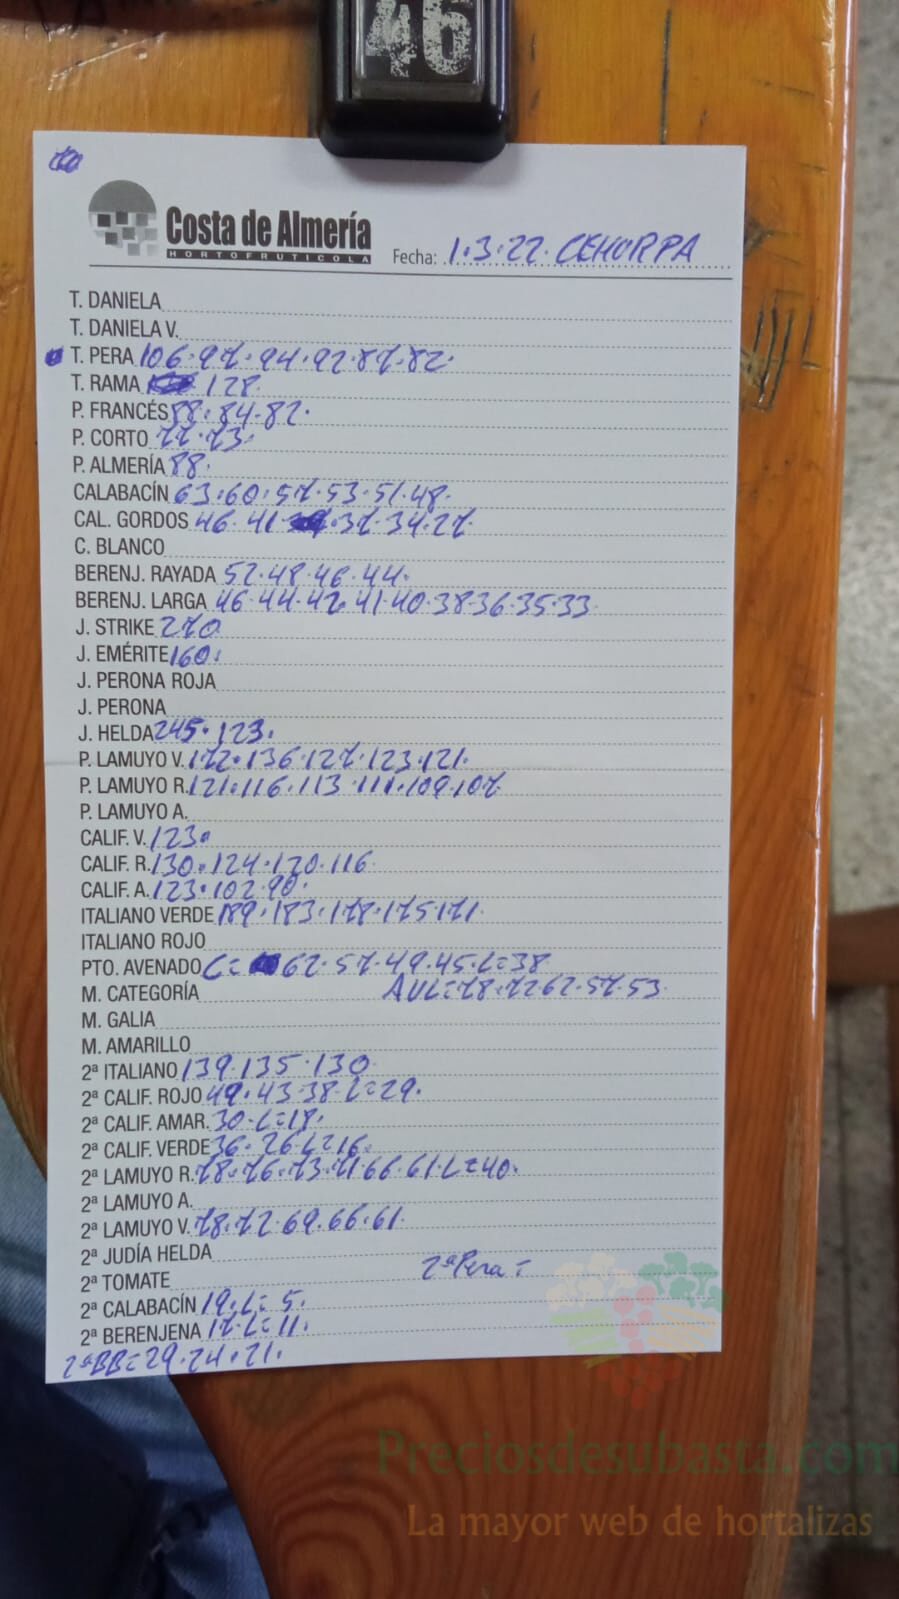 46
Costa de Almería
HORTOFRUTICOLA
Fecha: 1.3.22. CEHORPA
T. DANIELA
T. DANIELA V.
T. PERA 106.97.94.92.87.82.
T. RAMA 128.
P. FRANCÉS 88.84.82.
P. CORTO 77.73.
P. ALMERÍA 88.
CALABACÍN 63.60.57.53.51.48.
CAL. GORDOS 46.41.37.34.27.
C. BLANCO
BERENJ. RAYADA 52.48.46.44.
BERENJ. LARGA 46.44.42.41.40.38.36.35.33
J. STRIKE 270
J. EMÉRITE 160.
J. PERONA ROJA
J. PERONA
J. HELDA 245.123.
P. LAMUYO V. 172.136.127.123.121.
P. LAMUYO R. 121.116.113.111.109.107
P. LAMUYO A.
CALIF. V. 123.
CALIF. R. 130.124.120.116
CALIF. A. 123.102.90.
ITALIANO VERDE 189.183.178.175.171.
ITALIANO ROJO
PTO. AVENADO C= 62.57.49.45.L=38
M. CATEGORÍA AVL=78.72.62.57.53
M. GALIA
M. AMARILLO
2ª ITALIANO 139.135.130
2ª CALIF. ROJO 49.43.38.L=29.
2ª CALIF. AMAR. 30.L=18.
2ª CALIF. VERDE 36.26.L=16.
2ª LAMUYO R. 78.76.73.71.66.61.L=40.
2ª LAMUYO A.
2ª LAMUYO V. 78.72.69.66.61.
2ª JUDÍA HELDA
2ª TOMATE 2ª Pera =
2ª CALABACÍN 19.L=5.
2ª BERENJENA 17.L=11.
2ªBB=29.24.21.
Preciosdesubasta.com
La mayor web de hortalizas